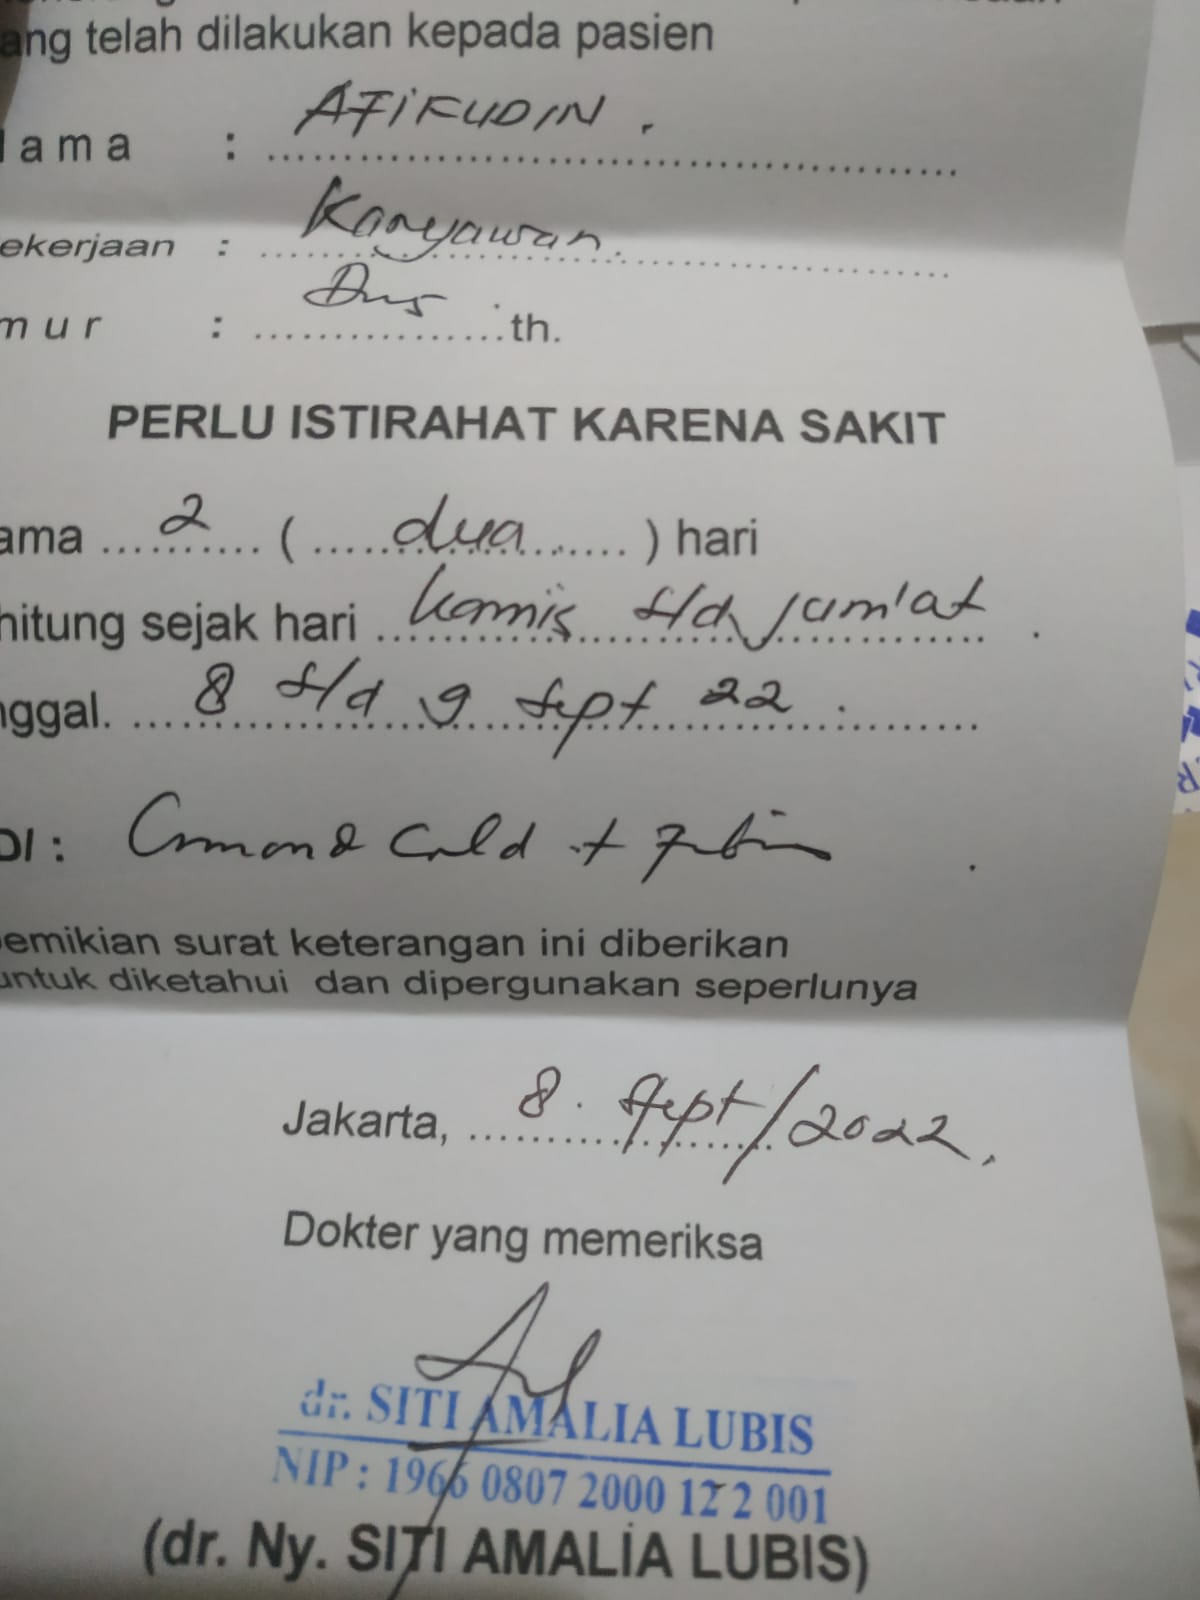 ang telah dilakukan kepada pasien
ama : AFIFUDIN.
ekerjaan : Karyawan
mur : Dws th.
PERLU ISTIRAHAT KARENA SAKIT
ama 2 ( dua ) hari
hitung sejak hari kamis s/d jum'at
nggal. 8 s/d 9 sept 22
DI : Common cold +
emikian surat keterangan ini diberikan
untuk diketahui dan dipergunakan seperlunya
Jakarta, 8. Sept/2022.
Dokter yang memeriksa
dr. SITI AMALIA LUBIS
NIP : 1966 0807 2000 12 2 001
(dr. Ny. SITI AMALIA LUBIS)